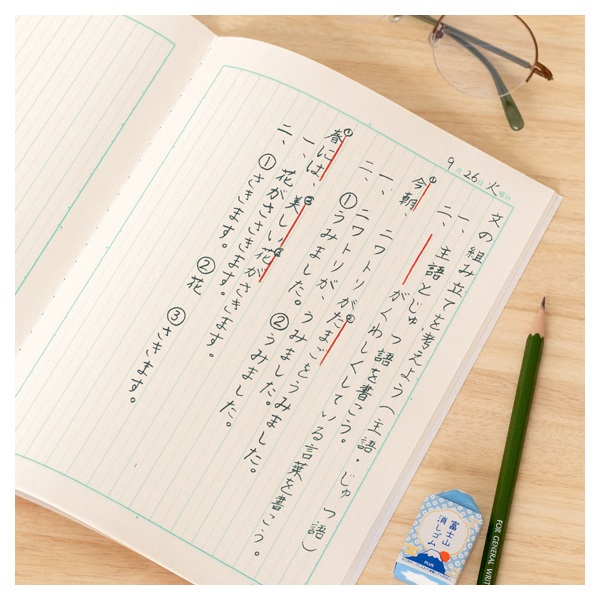 9月26日火曜日
文の組み立てを考えよう(主語・じゅつ語)
一、主語とじゅつ語を書こう。
二、 がくわしくしている言葉を書こう。
①今朝、ニワトリが②たまごをうみました。
一、ニワトリが、うみました。
二、①うみました。②うみました。
①春には、②美しい③花がさきます。
一、花がさきます。
二、①さきます。②花 ③さきます。
富士山
消しゴム
PLUS
FOR GENERAL WRIT